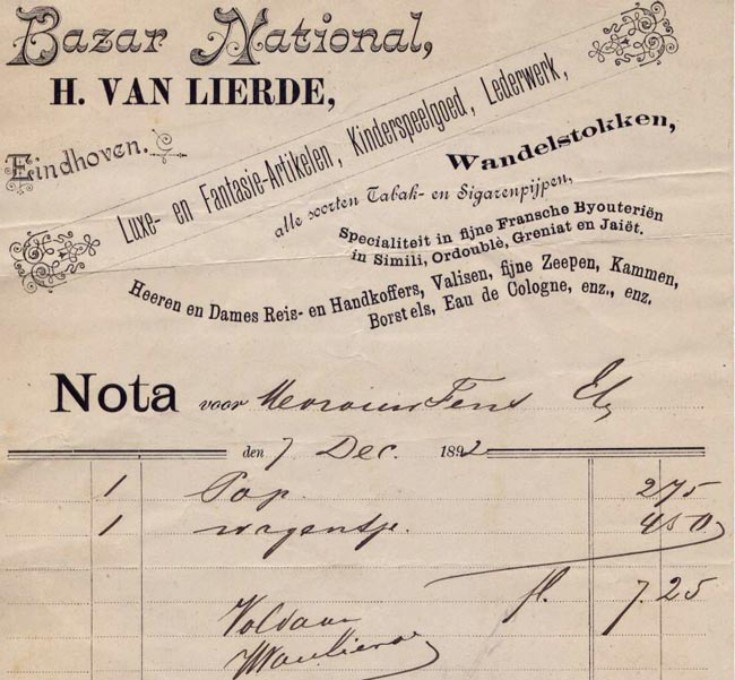 Bazar National,
H. VAN LIERDE,
Eindhoven.
Luxe- en Fantasie-Artikelen, Kinderspeelgoed, Lederwerk,
Wandelstokken,
alle soorten Tabak- en Sigarenpijpen,
Specialiteit in fijne Fransche Byouteriën
in Simili, Ordoublè, Greniat en Jaiët.
Heeren en Dames Reis- en Handkoffers, Valisen, fijne Zeepen, Kammen,
Borstels, Eau de Cologne, enz., enz.
Nota voor Mevrouw
den 7 Dec. 1892
1 Pop. 275
1 wagentje. 450
fl. 7.25
Voldaan